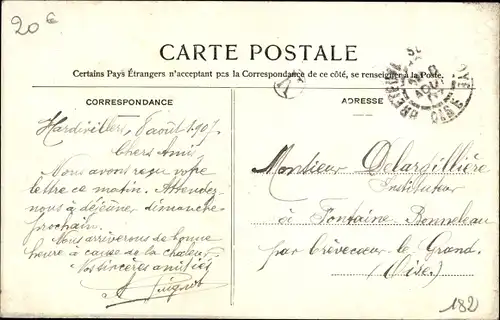 20€
CARTE POSTALE
Certains Pays Étrangers n'acceptant pas la Correspondance de ce côté, se renseigner à la Poste.
CORRESPONDANCE
Hardivillers, 8 août 1907
Chers Amis
Nous avons reçu votre
lettre ce matin. Attendez-
nous à déjeuner dimanche
prochain.
Nous arriverons de bonne
heure à cause de la chaleur.
Nos sincères amitiés
A
ADRESSE
Monsieur Delargillière
Instituteur
à Fontaine Bonneleau
par Crèvecœur-le-Grand
(Oise)
AOUT
OISE
182